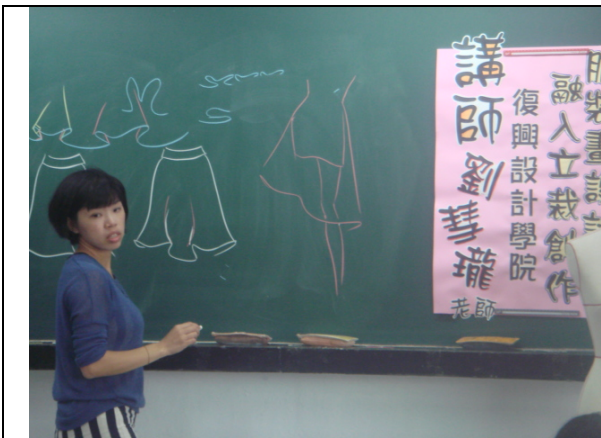 服裝畫設計
融入立裁創作
復興設計學院
講師劉彗瓏老師